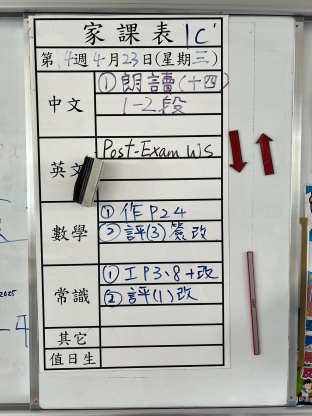 家課表 1C
第4週4月23日(星期三)
中文 ①朗讀(十四)
1-2段
英文 Post-Exam WS
數學 ①作P24
②評(3)簽改
常識 ①工P3、8+改
②評(1)改
其它
值日生
2025